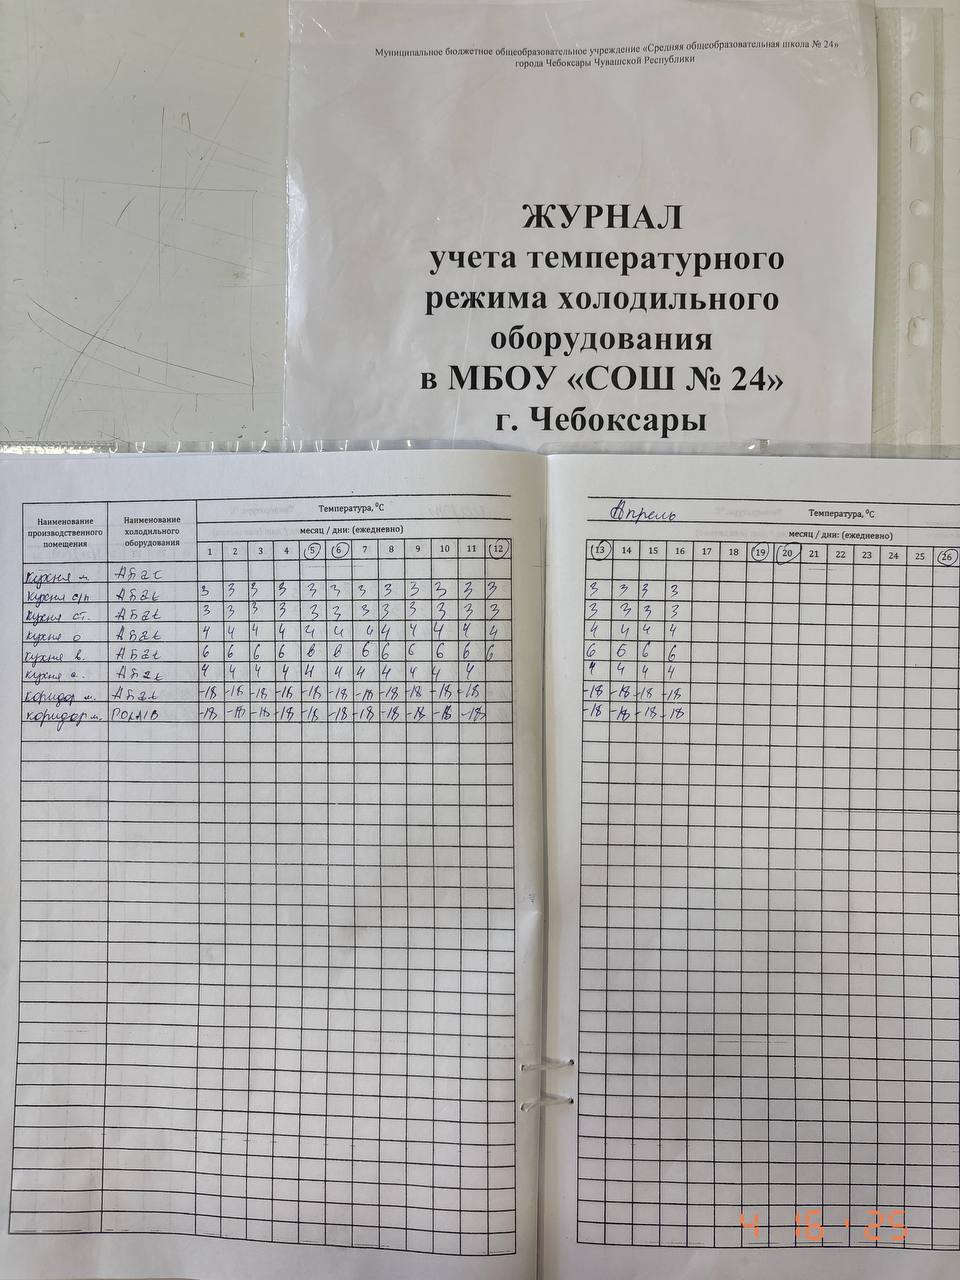 Муниципальное бюджетное общеобразовательное учреждение «Средняя общеобразовательная школа № 24»
города Чебоксары Чувашской Республики
ЖУРНАЛ
учета температурного
режима холодильного
оборудования
в МБОУ «СОШ № 24»
г. Чебоксары
Наименование производственного помещения
Наименование холодильного оборудования
Температура, ⁰С
месяц / дни: (ежедневно)
1 2 3 4 5 6 7 8 9 10 11 12
Кухня м.
Кухня с/п 3 3 3 3 3 3 3 3 3 3 3 3
Кухня ст. 3 3 3 3 3 3 3 3 3 3 3 3
Кухня о 4 4 4 4 4 4 4 4 4 4 4 4
Кухня в. 6 6 6 6 6 6 6 6 6 6 6 6
Кухня 4 4 4 4 4 4 4 4 4 4 4
Коридор м. -18 -18 -18 -18 -18 -18 -18 -18 -18 -18 -18
Коридор м. -18 -18 -18 -18 -18 -18 -18 -18 -18 -18 -18
Апрель Температура, ⁰С
месяц / дни: (ежедневно)
13 14 15 16 17 18 19 20 21 22 23 24 25 26
3 3 3 3
3 3 3 3
4 4 4 4
6 6 6 6
4 4 4 4
-18 -18 -18 -18
-18 -18 -18 -18
4 16 ' 25